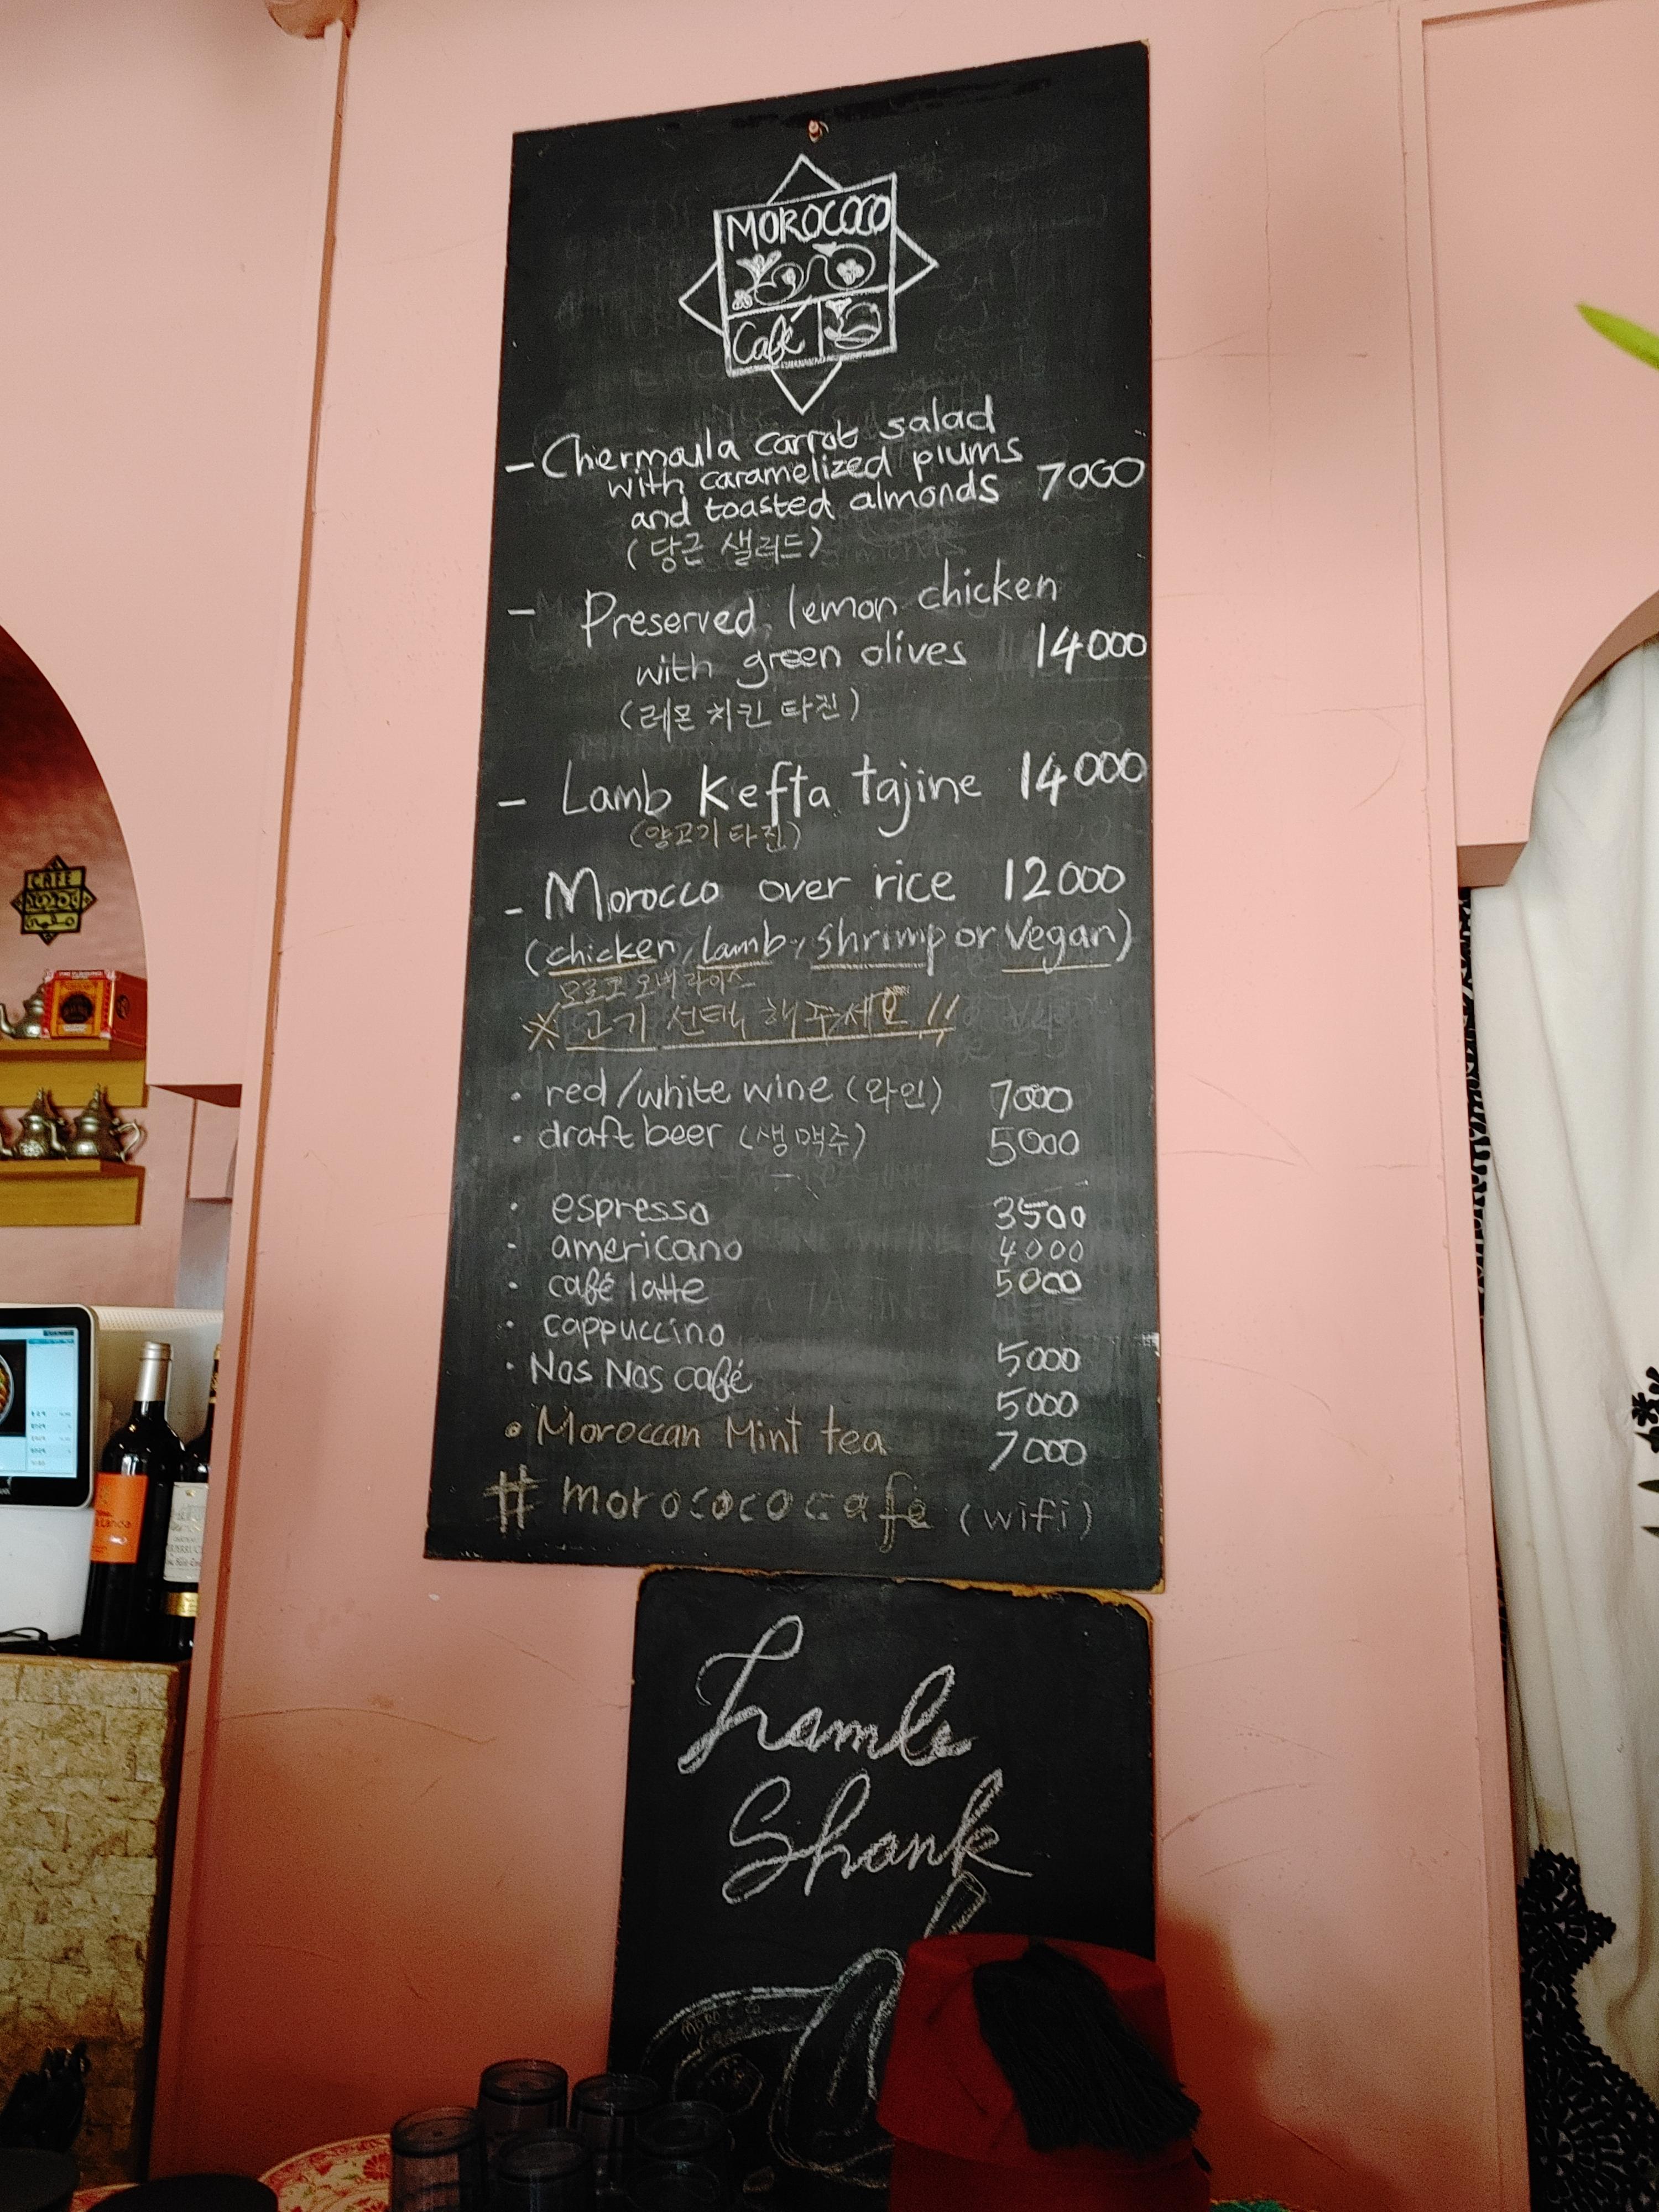 MOROCOCO
Café
- Chermoula carrot salad
with caramelized plums
and toasted almonds 7000
(당근 샐러드)
- Preserved lemon chicken
with green olives 14000
(레몬 치킨 타진)
- Lamb Kefta tajine 14000
(양고기 타진)
- Morocco over rice 12000
(chicken, lamb, shrimp or Vegan)
모로코 오버 라이스
※ 고기 선택 해주세요!!
· red/white wine (와인) 7000
· draft beer (생맥주) 5000
· espresso 3500
· americano 4000
· café latte 5000
· cappuccino 5000
· Nos Nos café 5000
· Moroccan Mint tea 7000
# morocococafe (wifi)
Lamb
Shank
CAFE